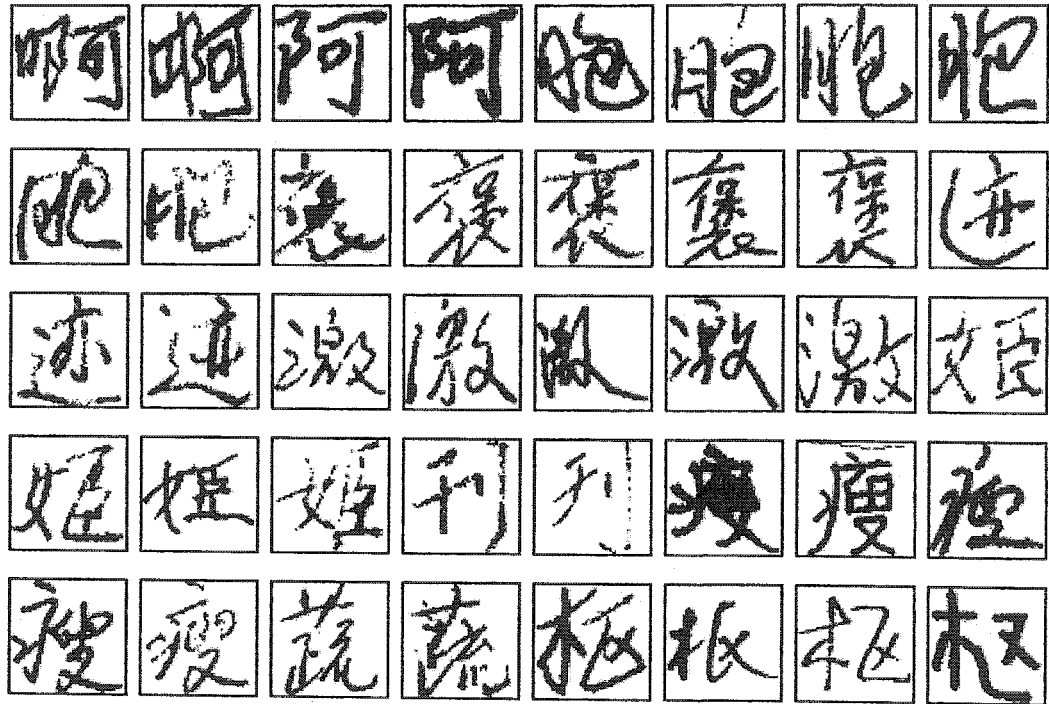 啊啊阿阿胞胞胞胞
胞胞褒褒褒褒褒迹
迹迹激激激激激姬
姬姬姬刊刊瘦瘦瘦
瘦瘦蔬蔬枢枢枢枢